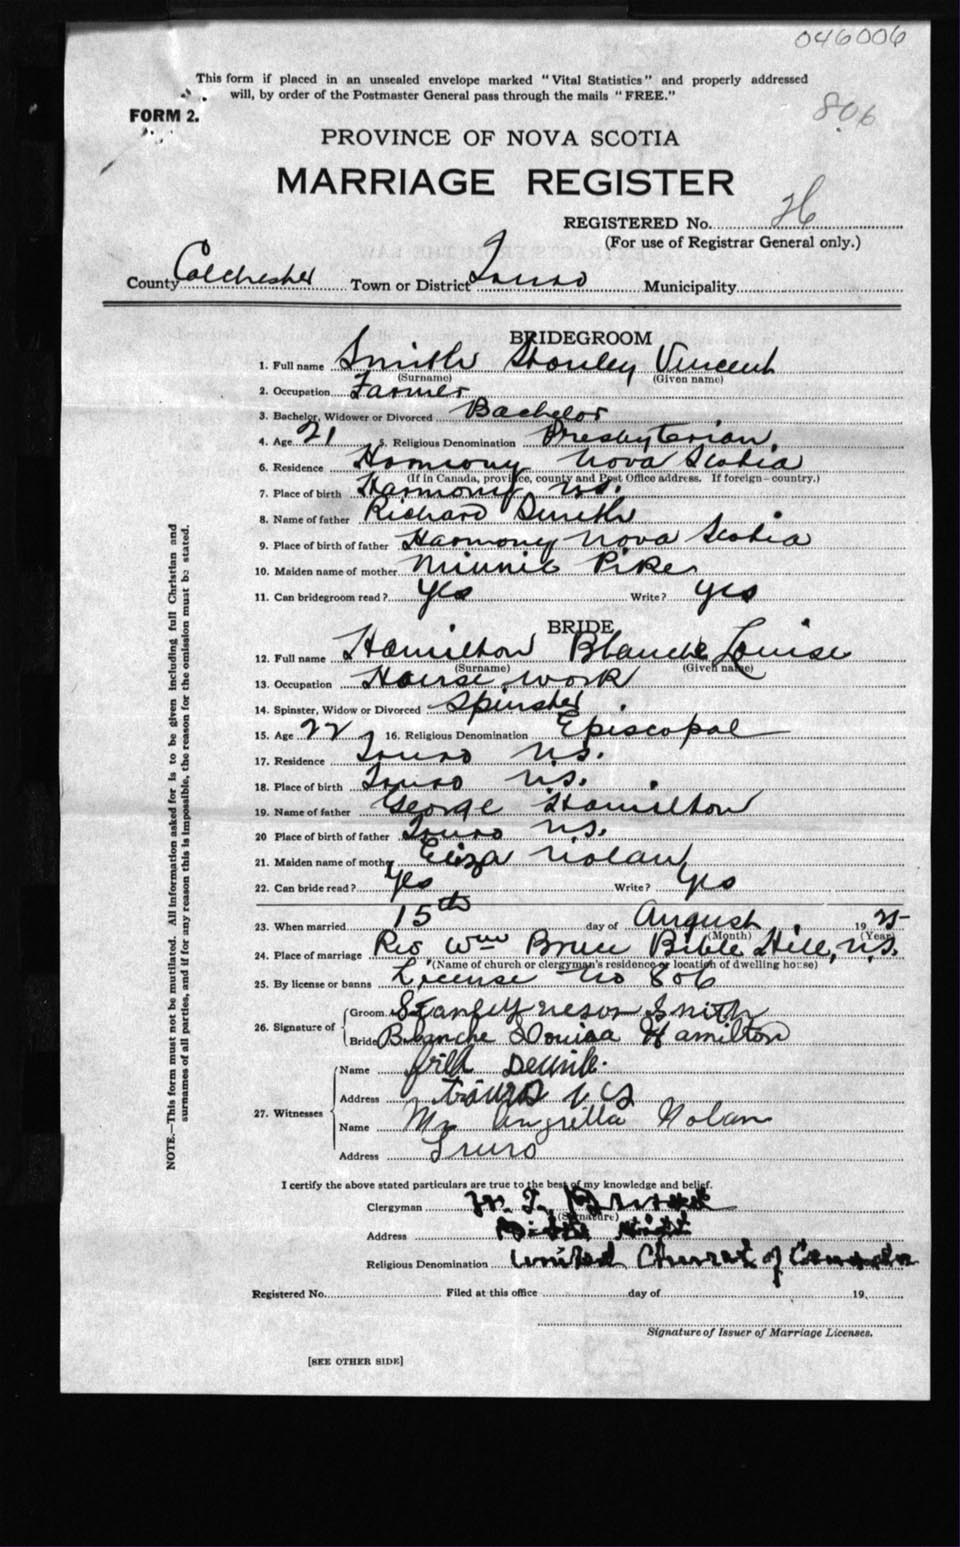 046006
This form if placed in an unsealed envelope marked "Vital Statistics" and properly addressed
will, by order of the Postmaster General pass through the mails "FREE."
806
FORM 2.
PROVINCE OF NOVA SCOTIA
MARRIAGE REGISTER
REGISTERED No. H
(For use of Registrar General only.)
County Colchester Town or District Truro Municipality
BRIDEGROOM
1. Full name Smith Stanley Vincent
(Surname) (Given name)
2. Occupation Farmer
3. Bachelor, Widower or Divorced Bachelor
4. Age 21 5. Religious Denomination Presbyterian.
6. Residence Harmony Nova Scotia
(If in Canada, province, county and Post Office address. If foreign—country.)
7. Place of birth Harmony N.S.
8. Name of father Richard Smith
9. Place of birth of father Harmony Nova Scotia
10. Maiden name of mother Minnie Pike
11. Can bridegroom read? Yes Write? Yes
BRIDE
12. Full name Hamilton Blanche Louise
(Surname) (Given name)
13. Occupation House work
14. Spinster, Widow or Divorced Spinster
15. Age 22 16. Religious Denomination Episcopal
17. Residence Truro N.S.
18. Place of birth Truro N.S.
19. Name of father George Hamilton
20 Place of birth of father Truro N.S.
21. Maiden name of mother Eliza Nolan
22. Can bride read? Yes Write? Yes
23. When married 15th day of August 1925
(Month) (Year)
24. Place of marriage Rev Wm Bruce Bible Hill, N.S.
(Name of church or clergyman's residence or location of dwelling house)
25. By license or banns License No 806
26. Signature of Groom Stanley Smith
Bride Blanche Louisa Hamilton
27. Witnesses
Name
Address Truro N S
Name Nolan
Address Truro
I certify the above stated particulars are true to the best of my knowledge and belief.
Clergyman
(Signature)
Address
Religious Denomination United Church of Canada
Registered No. Filed at this office day of 19
Signature of Issuer of Marriage Licenses.
[SEE OTHER SIDE]
NOTE.—This form must not be mutilated. All information asked for is to be given including full Christian and
surnames of all parties, and if for any reason this is impossible, the reason for the omission must be stated.